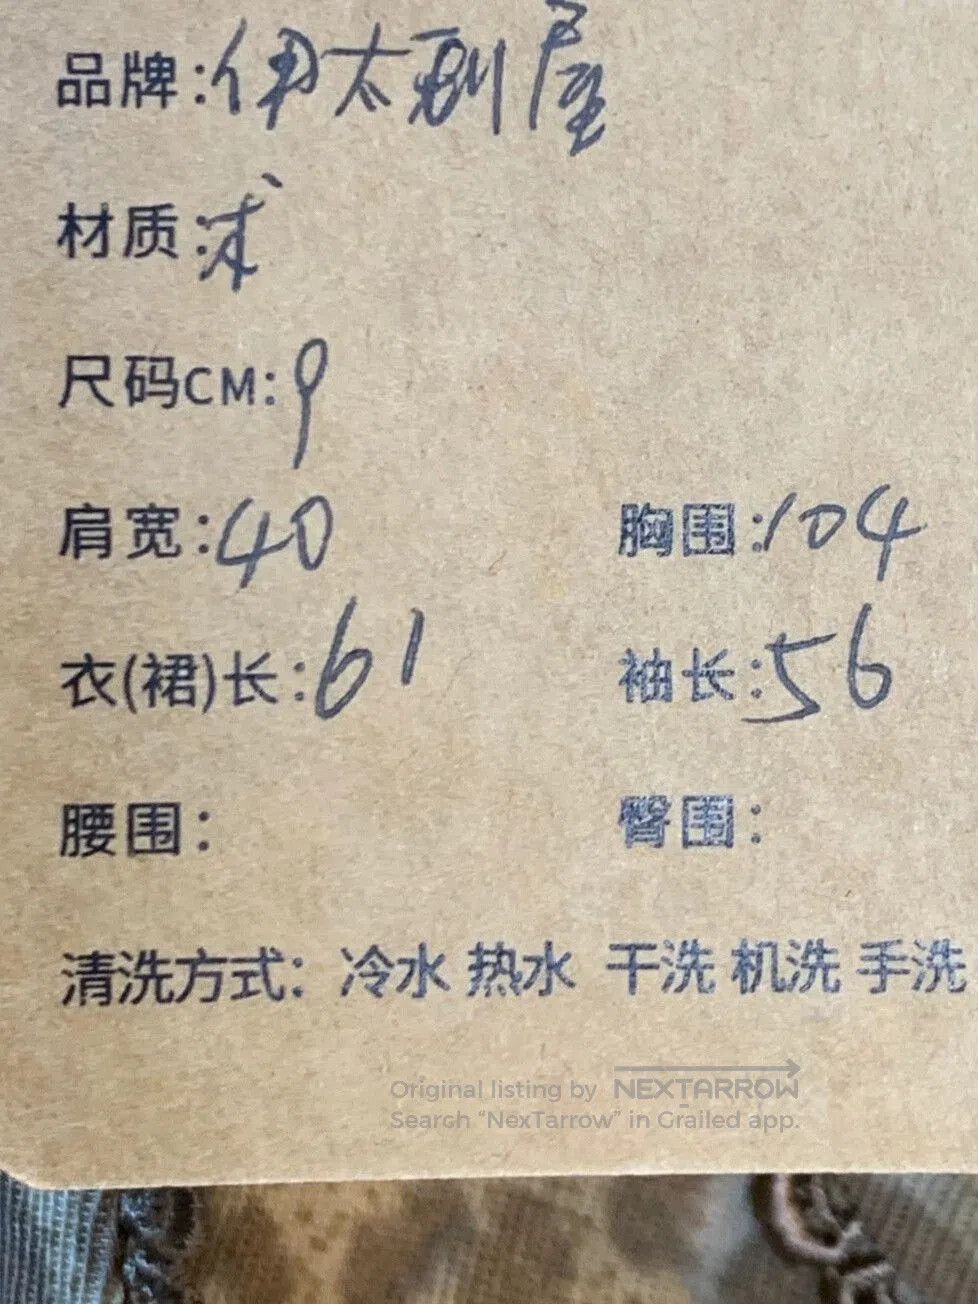 品牌:伊太利屋
材质:
尺码CM:9
肩宽:40 胸围:104
衣(裙)长:61 袖长:56
腰围: 臀围:
清洗方式: 冷水 热水 干洗 机洗 手洗
Original listing by NEXTARROW
Search “NexTarrow” in Grailed app.